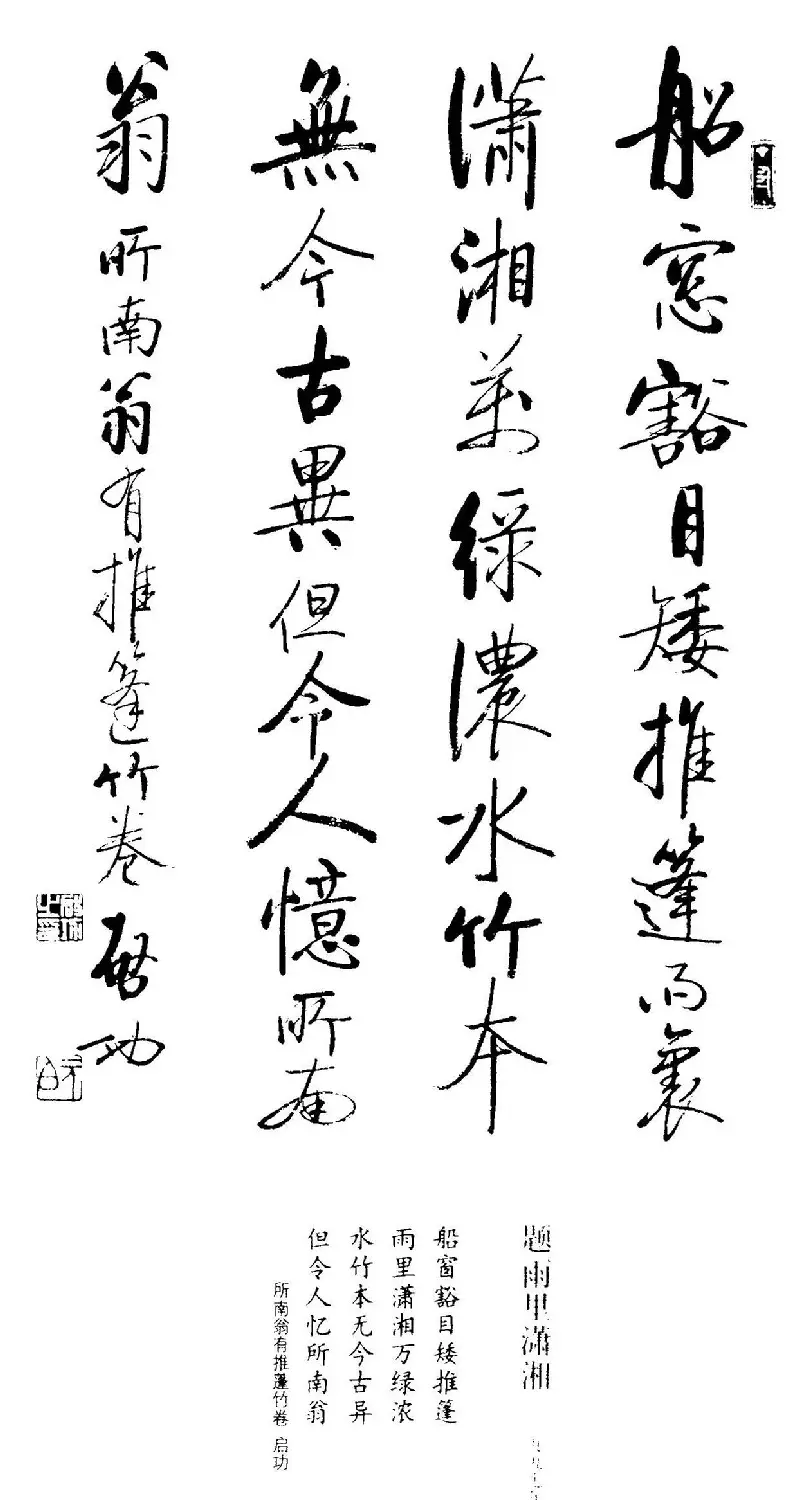 船窓豁目矮推篷雨裏
瀟湘萬綠濃水竹本
無今古異但令人憶所南
翁
所南翁有推篷竹卷 啓功
题雨里潇湘
船窗豁目矮推篷
雨里潇湘万绿浓
水竹本无今古异
但令人忆所南翁
所南翁有推篷竹卷 启功